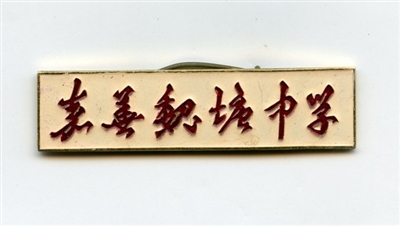 嘉善魏塘中学